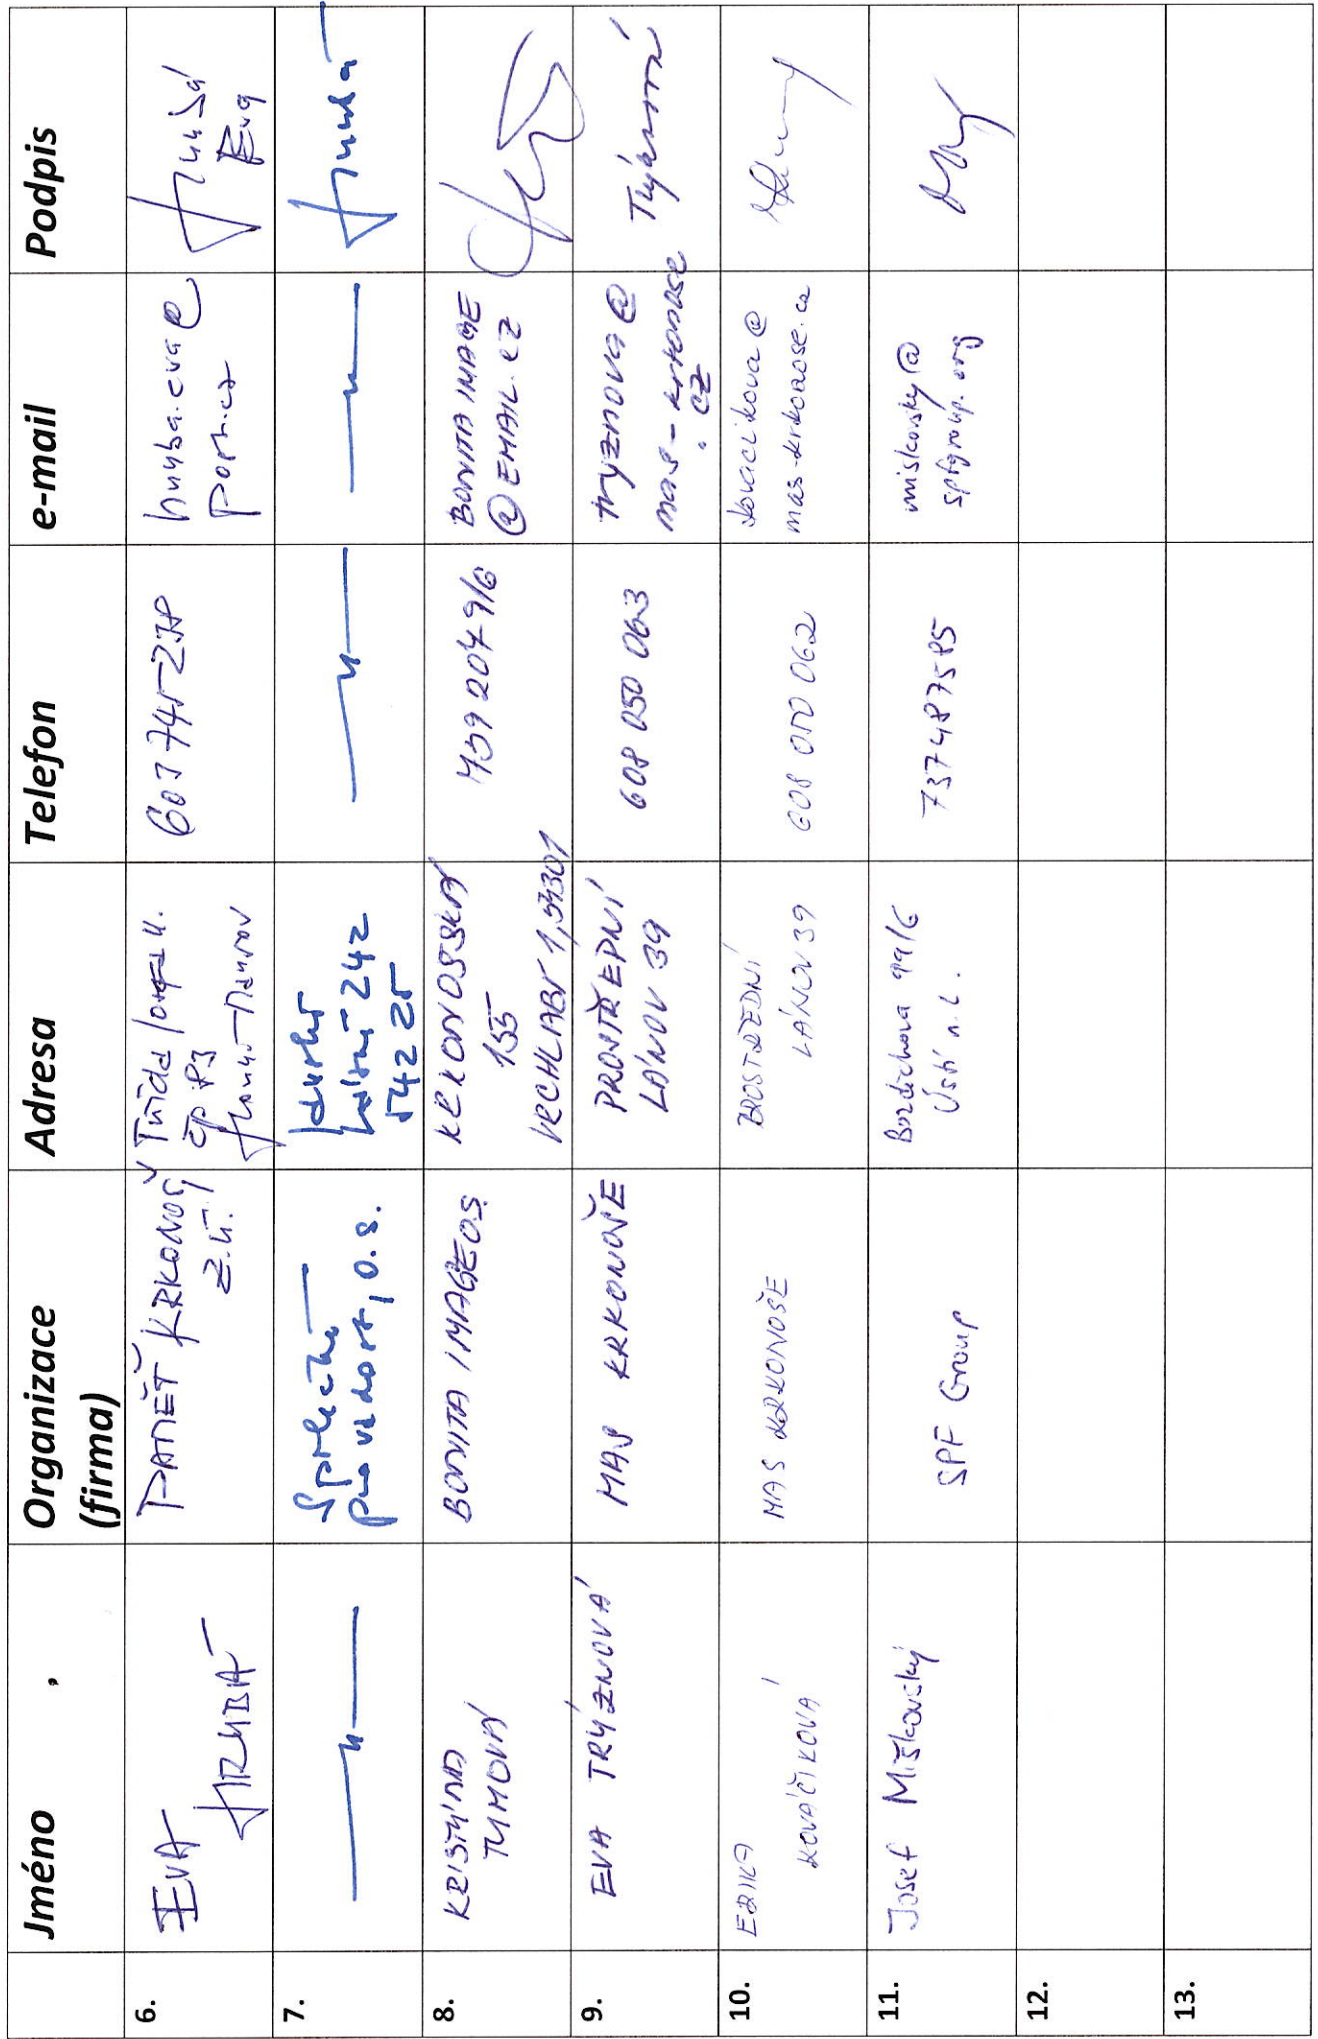 Jméno
Organizace
(firma)
Adresa
Telefon
e-mail
Podpis
6.
EVA
HRUBÁ
PAMĚŤ KRKONOŠ,
z.ú.
Třída
čp. 83
hruba.eva@
post.cz
Hrubá
Eva
7.
Společně
pro radost, o.s.
242
542 25
Hrubá
8.
KRISTÝNA
TUMOVÁ
BONITA IMAGE O.S.
KRKONOŠSKÁ
155
VRCHLABÍ 1, 54301
739 204 916
BONITA IMAGE
@EMAIL.CZ
9.
EVA TRÝZNOVÁ
MAS KRKONOŠE
PROSTŘEDNÍ
LÁNOV 39
608 050 063
tryznova@
mas-krkonose
.cz
Trýznová
10.
ERIKA
KOVÁČIKOVÁ
MAS KRKONOŠE
PROSTŘEDNÍ
LÁNOV 39
608 050 062
kovacikova@
mas-krkonose.cz
11.
Josef Miškovský
SPF Group
Bozděchova 99/6
Ústí n.L.
737487585
miskovsky@
spfgroup.org
12.
13.